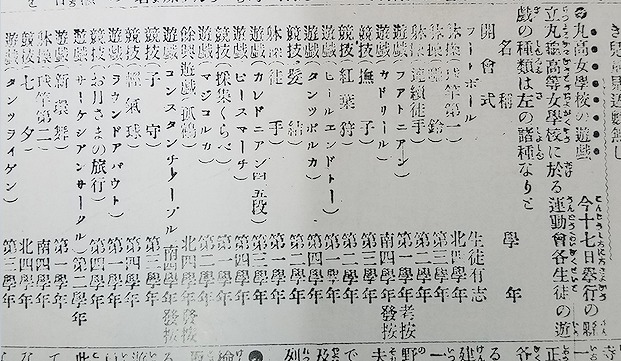 丸高女學校の遊戯 今十七日擧行の縣
立丸龜高等女學校に於る運動會各生徒の遊
戯の種類は左の諸種なりと
名稱 學年
開會式
フートボール 生徒有志
體操(球竿第一) 北四學年
體操(啞鈴) 第三學年
體操(連續徒手) 第二學年
遊戯(フアトニアン) 第一學年
遊戯(カドリール) 南四學年
競技(撫子) 第三學年
競技(紅葉狩) 第一學年
遊戯(ヒールエンドトー) 第二學年
遊戯(タンツポルカ)
競技(髪結) 第二學年
體操(徒手) 第一學年
遊戯(カレドニアン四五段) 第三學年
遊戯(ピースマーチ) 第四學年
競技(採集くらべ) 第一學年
遊戯(マジコルカ) 第二學年
餘興遊戯(孤鶴) 北四學年
遊戯(コンスタンチノープル) 南四學年
競技(子守) 第三學年
競技(輕氣球) 第四學年
遊戯(ラウンドアバウト) 第一學年
競技(お月さまの旅行) 第四學年
遊戯(サーケシアンサークル) 第二學年
遊戯(新環舞) 第一學年
體操(球竿第二) 南四學年
競技(七夕) 北四學年
遊戯(タンツライゲン) 第三學年